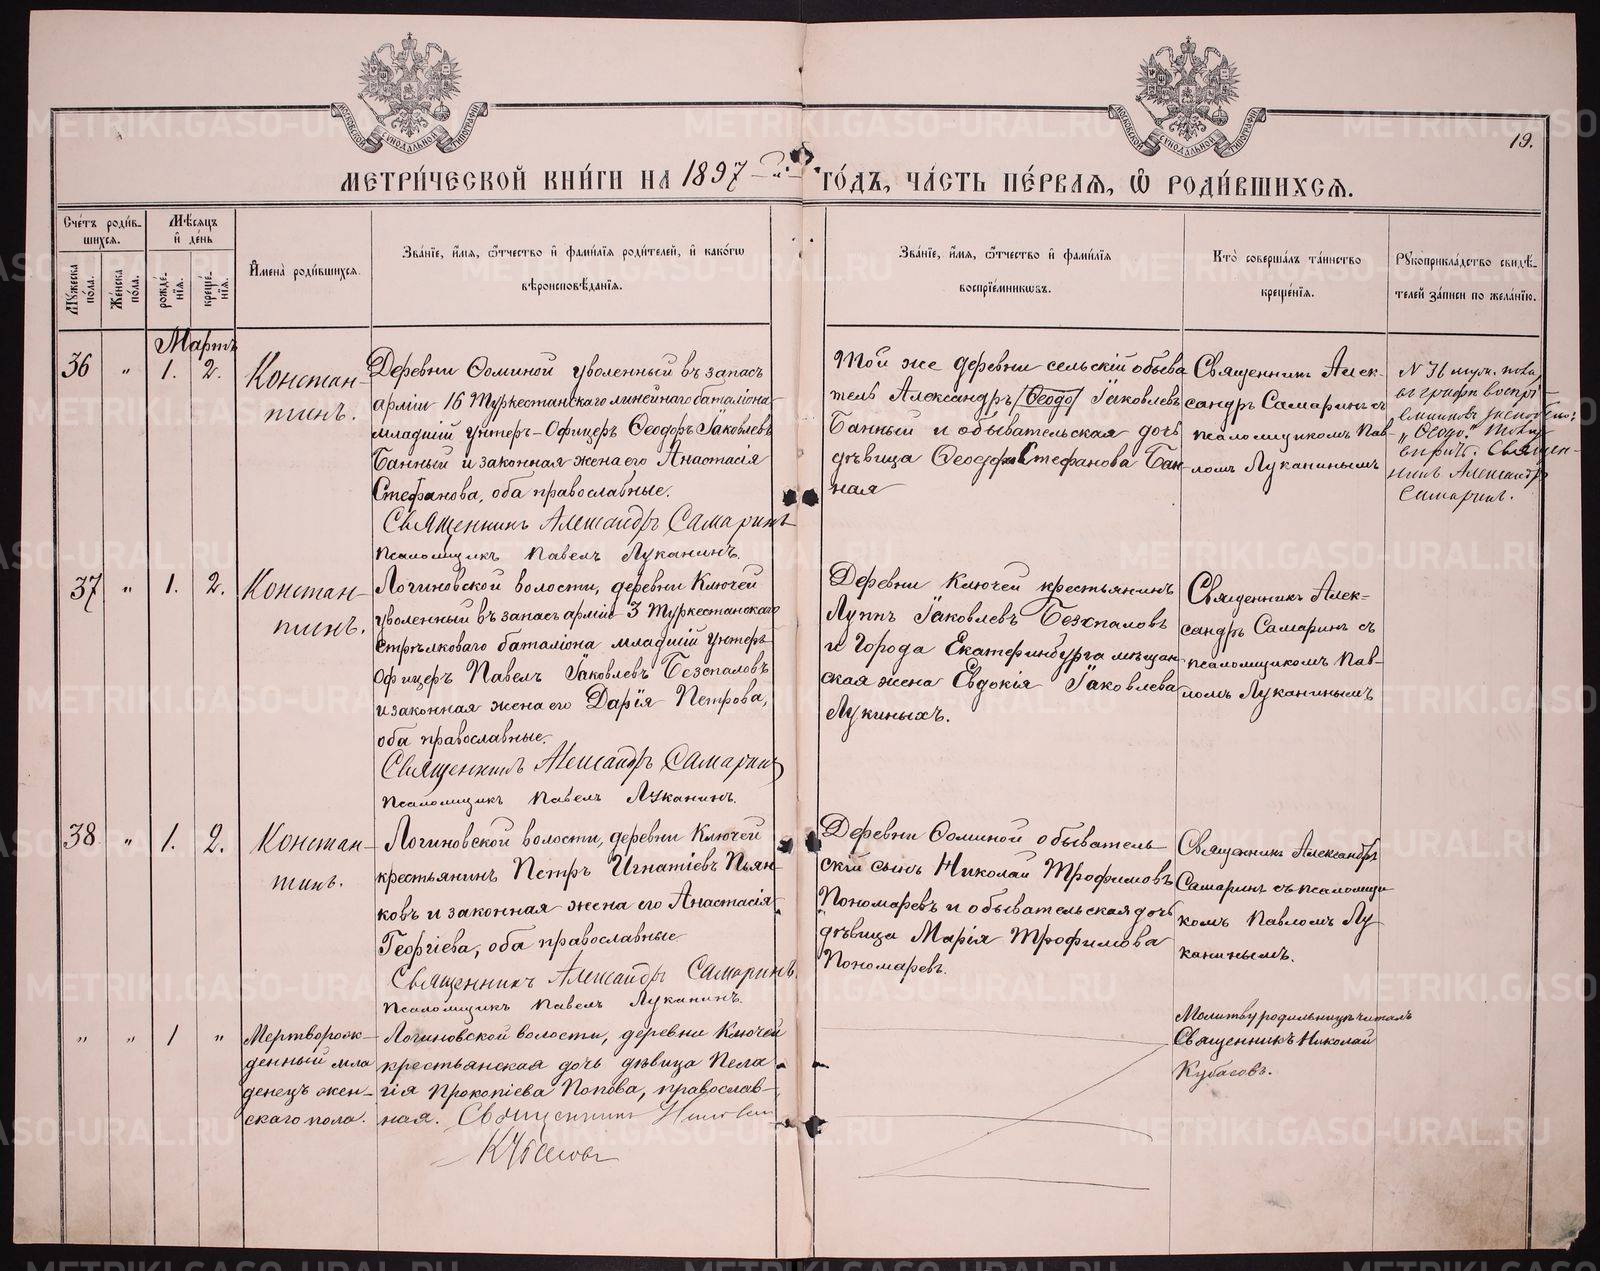 19.
МЕТРИ́ЧЕСКОЙ КНИ́ГИ НА 1897 й ГО́ДЪ, ЧА́СТЬ ПЕ́РВАЯ, Ѡ҆ РОДИ́ВШИХСЯ.
МОСКОВСКОЙ СѴНОДАЛЬНОЙ ТИПОГРАФІИ
МОСКОВСКОЙ СѴНОДАЛЬНОЙ ТИПОГРАФІИ
Сче́тъ роди́в-
шихся.
Мꙋ́жеска по́ла.
Же́нска по́ла.
Мѣ́сяцъ
и҆ де́нь
рожде́-нїя.
креще́-нїя.
И҆мена̀ роди́вшихся.
Зва́нїе, и҆́мя, ѻ҆́тчество и҆ фами́лїя роди́телей, и҆ како́гѡ
вѣроисповѣ́данїя.
Зва́нїе, и҆́мя, ѻ҆́тчество и҆ фами́лїя
воспрїе́мниковъ.
Кто̀ соверша́лъ та́инство
креще́нїя.
Рꙋкоприкла́дство свидѣ́-
телей за́писи по жела́нїю.
Мартъ
36 " 1. 2.
Констан-
тинъ.
Деревни Ѳоминой уволенный въ запасъ
арміи 16 Туркестанскаго линейнаго баталіона
младшій унтеръ-Офицеръ Ѳеодоръ Іаковлевъ
Банный и законная жена его Анастасія
Стефанова, оба православные.
Священникъ Александръ Самаринъ
Псаломщикъ Павелъ Луканинъ.
Той же деревни сельскій обыва
тель Александръ (Ѳеодо) Іаковлевъ
Банный и обывательская дочь
дѣвица Ѳеодора Стефанова Бан-
ная
Священникъ Алек-
сандръ Самаринъ съ
псаломщикомъ Пав-
ломъ Луканинымъ
N 36 муж. пола,
въ графѣ воспрі-
емниковъ
"Ѳеодо."
вѣрить. Священ-
никъ Александръ
Самаринъ.
37 " 1. 2.
Констан-
тинъ.
Логиновской волости, деревни Ключей
уволенный въ запасъ арміи 3 Туркестанскаго
стрѣлковаго баталіона младшій унтеръ-
Офицеръ Павелъ Іаковлевъ Безспаловъ
и законная жена его Дарія Петрова,
оба православные.
Священникъ Александръ Самаринъ
Псаломщикъ Павелъ Луканинъ.
Деревни Ключей крестьянинъ
Луппъ Іаковлевъ Безспаловъ
и Города Екатеринбурга мѣщан-
ская жена Евдокія Іаковлева
Лукиныхъ.
Священникъ Алек-
сандръ Самаринъ съ
псаломщикомъ Пав-
ломъ Луканинымъ
38 " 1. 2.
Констан-
тинъ.
Логиновской волости, деревни Ключей
крестьянинъ Петръ Игнатіевъ Пьян-
ковъ и законная жена его Анастасія
Георгіева, оба православные
Священникъ Александръ Самаринъ.
Псаломщикъ Павелъ Луканинъ.
Деревни Ѳоминой обыватель-
скій сынъ Николай Трофимовъ
Пономаревъ и обывательская дочь
дѣвица Марія Трофимова
Пономарев.
Священникъ Александръ
Самаринъ съ псаломщи
комъ Павломъ Лу
канинымъ.
" " 1 "
Мертворож-
денный мла
денецъ жен-
скаго пола.
Логиновской волости, деревни Ключей
крестьянская дочь дѣвица Пела
гія Прокопіева Попова, православ-
ная. Священникъ Николай
Кубасовъ
Молитву родильницѣ читалъ
Священникъ Николай
Кубасовъ.
METRIKI.GASO-URAL.RU